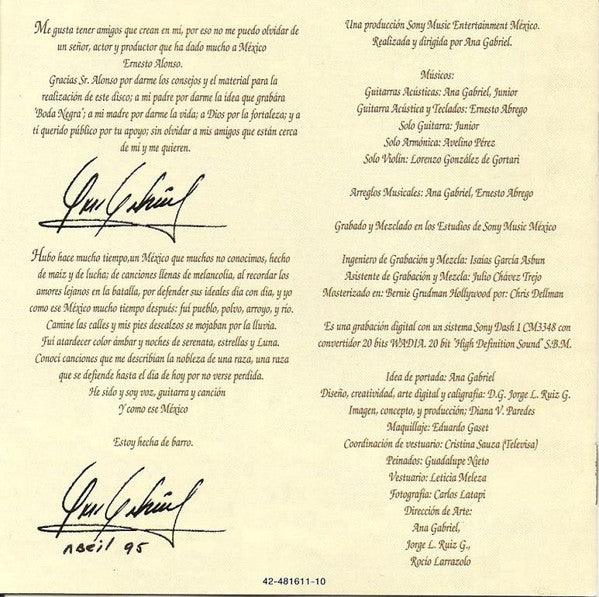 Me gusta tener amigos que crean en mi, por eso no me puedo olvidar de
un señor, actor y productor que ha dado mucho a México
Ernesto Alonso.
Gracias Sr. Alonso por darme los consejos y el material para la
realización de este disco; a mi padre por darme la idea que grabára
'Boda Negra'; a mi madre por darme la vida; a Dios por la fortaleza; y a
tí querido público por tu apoyo; sin olvidar a mis amigos que están cerca
de mí y me quieren.
Ana Gabriel
Hubo hace mucho tiempo,un México que muchos no conocimos, hecho
de maiz y de lucha; de canciones llenas de melancolia, al recordar los
amores lejanos en la batalla, por defender sus ideales dia con dia, y yo
como ese México mucho tiempo después: fui pueblo, polvo, arroyo, y rio.
Camine las calles y mis pies descalzos se mojaban por la lluvia.
Fui atardecer color ámbar y noches de serenata, estrellas y Luna.
Conoci canciones que me describian la nobleza de una raza, una raza
que se defiende hasta el dia de hoy por no verse perdida.
He sido y soy voz, guitarra y canción
Y como ese México
Estoy hecha de barro.
Ana Gabriel
Abril 95
Una producción Sony Music Entertainment México.
Realizada y dirigida por Ana Gabriel.
Músicos:
Guitarras Acústicas: Ana Gabriel, Junior
Guitarra Acústica y Teclados: Ernesto Abrego
Solo Guitarra: Junior
Solo Armónica: Avelino Pérez
Solo Violin: Lorenzo González de Gortari
Arreglos Musicales: Ana Gabriel, Ernesto Abrego
Grabado y Mezclado en los Estudios de Sony Music México
Ingeniero de Grabación y Mezcla: Isaias García Asbun
Asistente de Grabación y Mezcla: Julio Chávez Trejo
Mosterizado en: Bernie Grudman Hollywood por: Chris Dellman
Es una grabación digital con un sistema Sony Dash 1 CM3348 con
convertidor 20 bits WADIA. 20 bit "High Definition Sound" S.B.M.
Idea de portada: Ana Gabriel
Diseño, creatividad, arte digital y caligrafia: D.G. Jorge L. Ruiz G.
Imagen, concepto, y producción; Diana V. Paredes
Maquillaje: Eduardo Gaset
Coordinación de vestuario: Cristina Sauza (Televisa)
Peinados: Guadalupe Nieto
Vestuario: Leticia Meleza
Fotografia: Carlos Latapi
Dirección de Arte:
Ana Gabriel,
Jorge L. Ruiz G.,
Rocio Larrazolo
42-481611-10